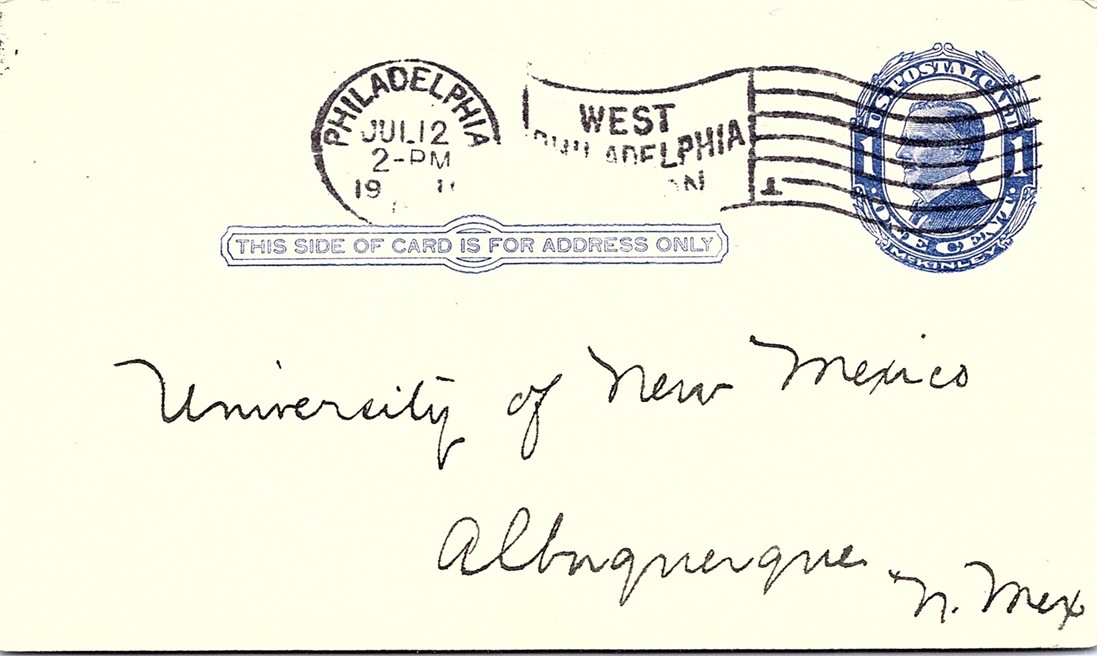 PHILADELPHIA
JUL 12
2-PM
19
WEST
PHILADELPHIA
U.S. POSTAL CARD
1 1
ONE CENT
McKINLEY
THIS SIDE OF CARD IS FOR ADDRESS ONLY
University of New Mexico
Albuquerque
N. Mex